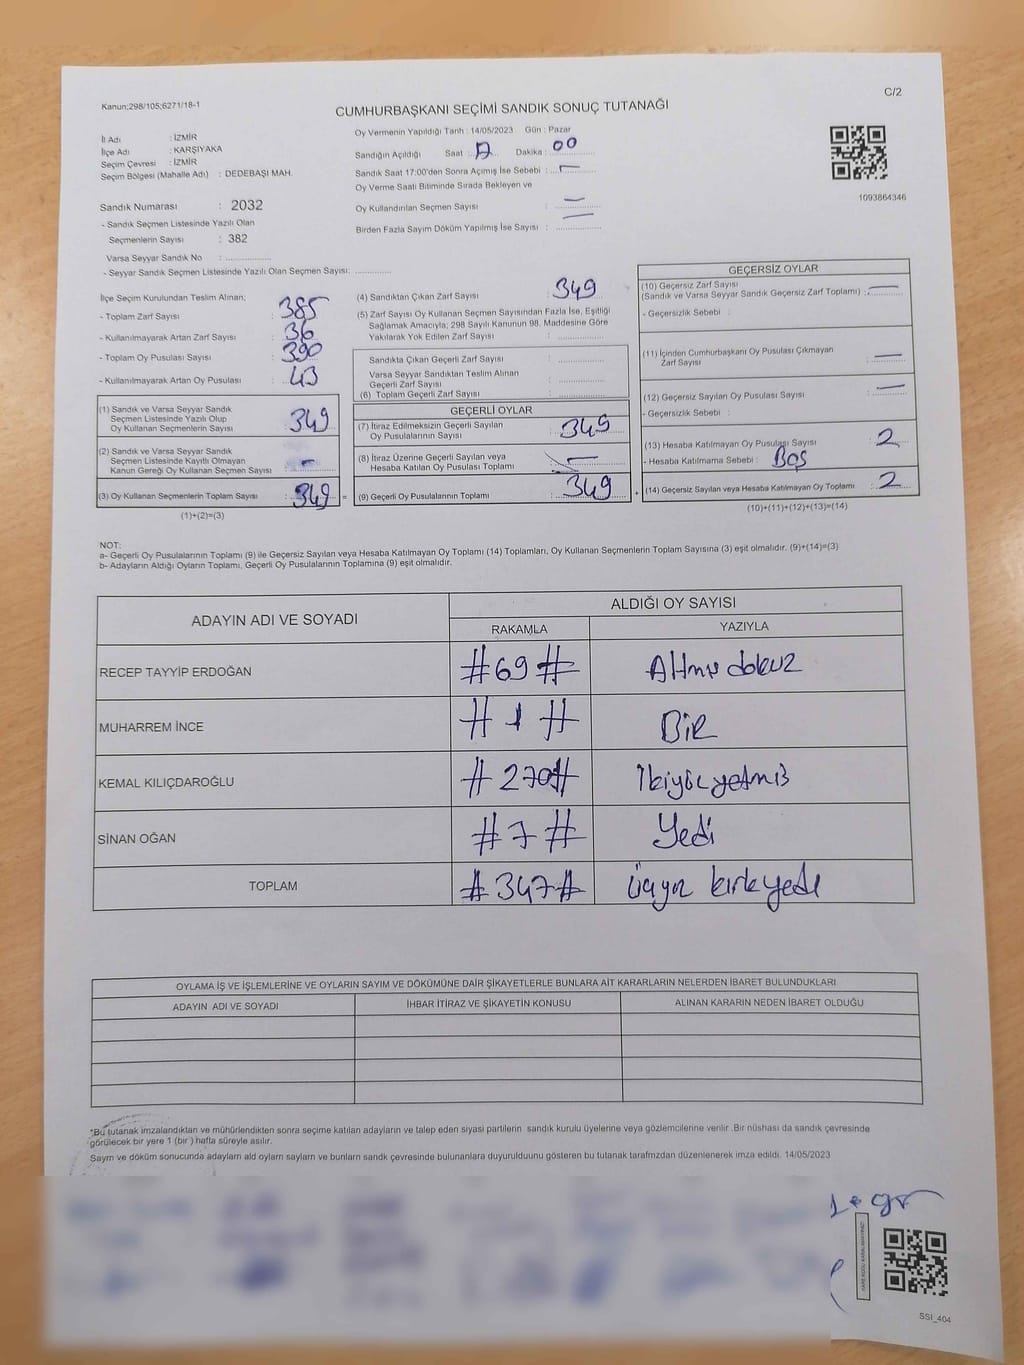 Kanun;298/105;6271/18-1
C/2
CUMHURBAŞKANI SEÇİMİ SANDIK SONUÇ TUTANAĞI
İl Adı : İZMİR
İlçe Adı : KARŞIYAKA
Seçim Çevresi : İZMİR
Seçim Bölgesi (Mahalle Adı) : DEDEBAŞI MAH.
Sandık Numarası : 2032
- Sandık Seçmen Listesinde Yazılı Olan
Seçmenlerin Sayısı : 382
Varsa Seyyar Sandık No :
- Seyyar Sandık Seçmen Listesinde Yazılı Olan Seçmen Sayısı:
Oy Vermenin Yapıldığı Tarih : 14/05/2023 Gün : Pazar
Sandığın Açıldığı Saat : 17 Dakika : 00
Sandık Saat 17:00'den Sonra Açılmış İse Sebebi : –
Oy Verme Saati Bitiminde Sırada Bekleyen ve
Oy Kullandırılan Seçmen Sayısı : –
Birden Fazla Sayım Döküm Yapılmış İse Sayısı : –
1093864346
İlçe Seçim Kurulundan Teslim Alınan;
- Toplam Zarf Sayısı : 385
- Kullanılmayarak Artan Zarf Sayısı : 36
- Toplam Oy Pusulası Sayısı : 390
- Kullanılmayarak Artan Oy Pusulası : 43
(1) Sandık ve Varsa Seyyar Sandık
Seçmen Listesinde Yazılı Olup
Oy Kullanan Seçmenlerin Sayısı : 349
(2) Sandık ve Varsa Seyyar Sandık
Seçmen Listesinde Kayıtlı Olmayan
Kanun Gereği Oy Kullanan Seçmen Sayısı : –
(3) Oy Kullanan Seçmenlerin Toplam Sayısı : 349 =
(1)+(2)=(3)
(4) Sandıktan Çıkan Zarf Sayısı : 349
(5) Zarf Sayısı Oy Kullanan Seçmen Sayısından Fazla İse, Eşitliği
Sağlamak Amacıyla; 298 Sayılı Kanunun 98. Maddesine Göre
Yakılarak Yok Edilen Zarf Sayısı :
Sandıkta Çıkan Geçerli Zarf Sayısı :
Varsa Seyyar Sandıktan Teslim Alınan
Geçerli Zarf Sayısı :
(6) Toplam Geçerli Zarf Sayısı :
GEÇERLİ OYLAR
(7) İtiraz Edilmeksizin Geçerli Sayılan
Oy Pusulalarının Sayısı : 349
(8) İtiraz Üzerine Geçerli Sayılan veya
Hesaba Katılan Oy Pusulası Toplamı : –
(9) Geçerli Oy Pusulalarının Toplamı : 349 +
GEÇERSİZ OYLAR
(10) Geçersiz Zarf Sayısı
(Sandık ve Varsa Seyyar Sandık Geçersiz Zarf Toplamı) : –
- Geçersizlik Sebebi :
(11) İçinden Cumhurbaşkanı Oy Pusulası Çıkmayan
Zarf Sayısı : –
(12) Geçersiz Sayılan Oy Pusulası Sayısı : –
- Geçersizlik Sebebi :
(13) Hesaba Katılmayan Oy Pusulası Sayısı : 2
- Hesaba Katılmama Sebebi : BOŞ
(14) Geçersiz Sayılan veya Hesaba Katılmayan Oy Toplamı : 2
(10)+(11)+(12)+(13)=(14)
NOT:
a- Geçerli Oy Pusulalarının Toplamı (9) ile Geçersiz Sayılan veya Hesaba Katılmayan Oy Toplamı (14) Toplamları, Oy Kullanan Seçmenlerin Toplam Sayısına (3) eşit olmalıdır. (9)+(14)=(3)
b- Adayların Aldığı Oyların Toplamı, Geçerli Oy Pusulalarının Toplamına (9) eşit olmalıdır.
ADAYIN ADI VE SOYADI ALDIĞI OY SAYISI
RAKAMLA YAZIYLA
RECEP TAYYİP ERDOĞAN #69# Altmış dokuz
MUHARREM İNCE #1# BİR
KEMAL KILIÇDAROĞLU #270# İkiyüz yetmiş
SİNAN OĞAN #7# Yedi
TOPLAM #347# Üçyüz kırkyedi
OYLAMA İŞ VE İŞLEMLERİNE VE OYLARIN SAYIM VE DÖKÜMÜNE DAİR ŞİKAYETLERLE BUNLARA AİT KARARLARIN NELERDEN İBARET BULUNDUKLARI
ADAYIN ADI VE SOYADI İHBAR İTİRAZ VE ŞİKAYETİN KONUSU ALINAN KARARIN NEDEN İBARET OLDUĞU
*Bu tutanak imzalandıktan ve mühürlendikten sonra seçime katılan adayların ve talep eden siyasi partilerin sandık kurulu üyelerine veya gözlemcilerine verilir .Bir nüshası da sandık çevresinde
görülecek bir yere 1 (bir ) hafta süreyle asılır.
Sayım ve döküm sonucunda adayların aldı oyların sayıların ve bunların sandık çevresinde bulunanlara duyurulduunu gösteren bu tutanak tarafmzdan düzenlenerek imza edildi. 14/05/2023
SSI_404